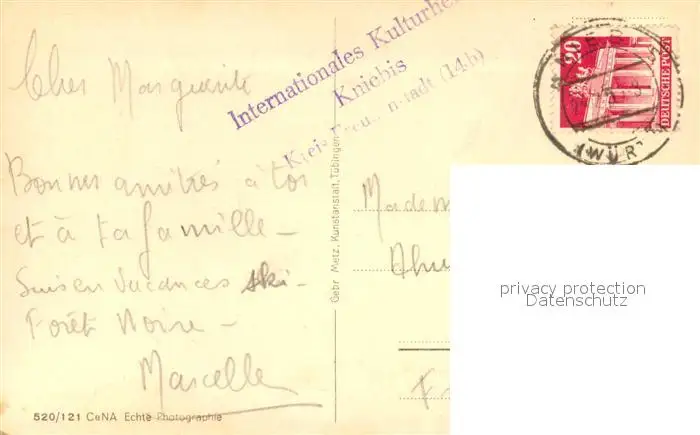 Cher Marguerite
Bonnes amitiés à toi
et à ta famille –
Suis en vacances ski –
Forêt Noire –
Marcelle
520/121 CeNA Echte Photographie
Gebr. Metz, Kunstanstalt, Tübingen
Internationales Kulturhe
Kniebis
Kreis Freudenstadt (14b)
20
DEUTSCHE POST
(WÜR
Madem
F
privacy protection
Datenschutz